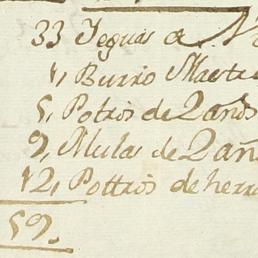 33 Yeguas a
1, Burro Maest
5, Potros de 2 años
9, Mulas de 2 añ
12, Pottros de herr
59.